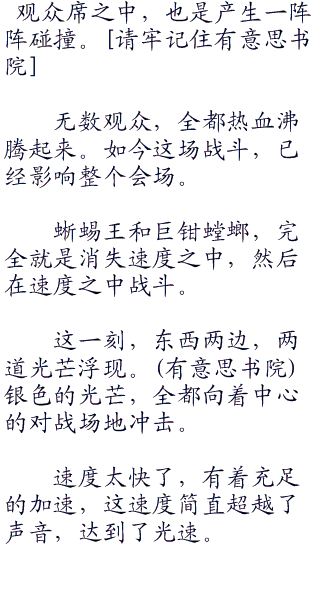 观众席之中，也是产生一阵
阵碰撞。[请牢记住有意思书
院]
无数观众，全都热血沸
腾起来。如今这场战斗，已
经影响整个会场。
蜥蜴王和巨钳螳螂，完
全就是消失速度之中，然后
在速度之中战斗。
这一刻，东西两边，两
道光芒浮现。(有意思书院)
银色的光芒，全都向着中心
的对战场地冲击。
速度太快了，有着充足
的加速，这速度简直超越了
声音，达到了光速。